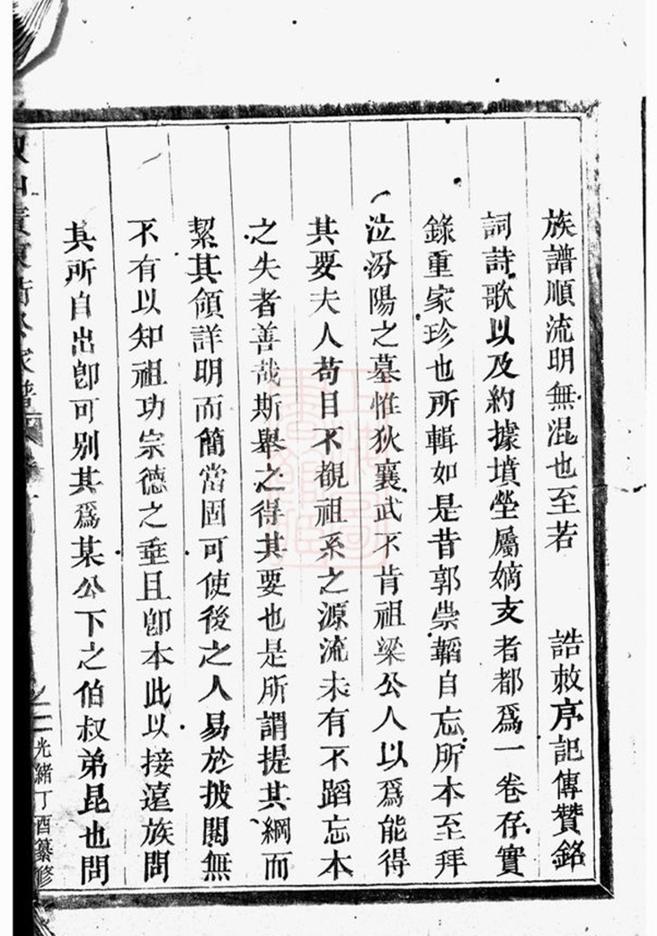 族譜順流明無混也至若　誥敕序記傳贊銘
詞詩歌以及約據墳塋屬嫡支者都為一卷存實
錄重家珍也所輯如是昔郭崇韜自忘所本至拜
泣汾陽之墓惟狄襄武不肯祖梁公人以為能得
其要夫人苟目不覩祖系之源流未有不蹈忘本
之失者善哉斯舉之得其要也是所謂提其綱而
絜其領詳明而簡當固可使後之人易於披閱無
不有以知祖功宗德之垂且卽本此以接遠族問
其所自出卽可別其為某公下之伯叔弟昆也問
光緒丁酉纂修